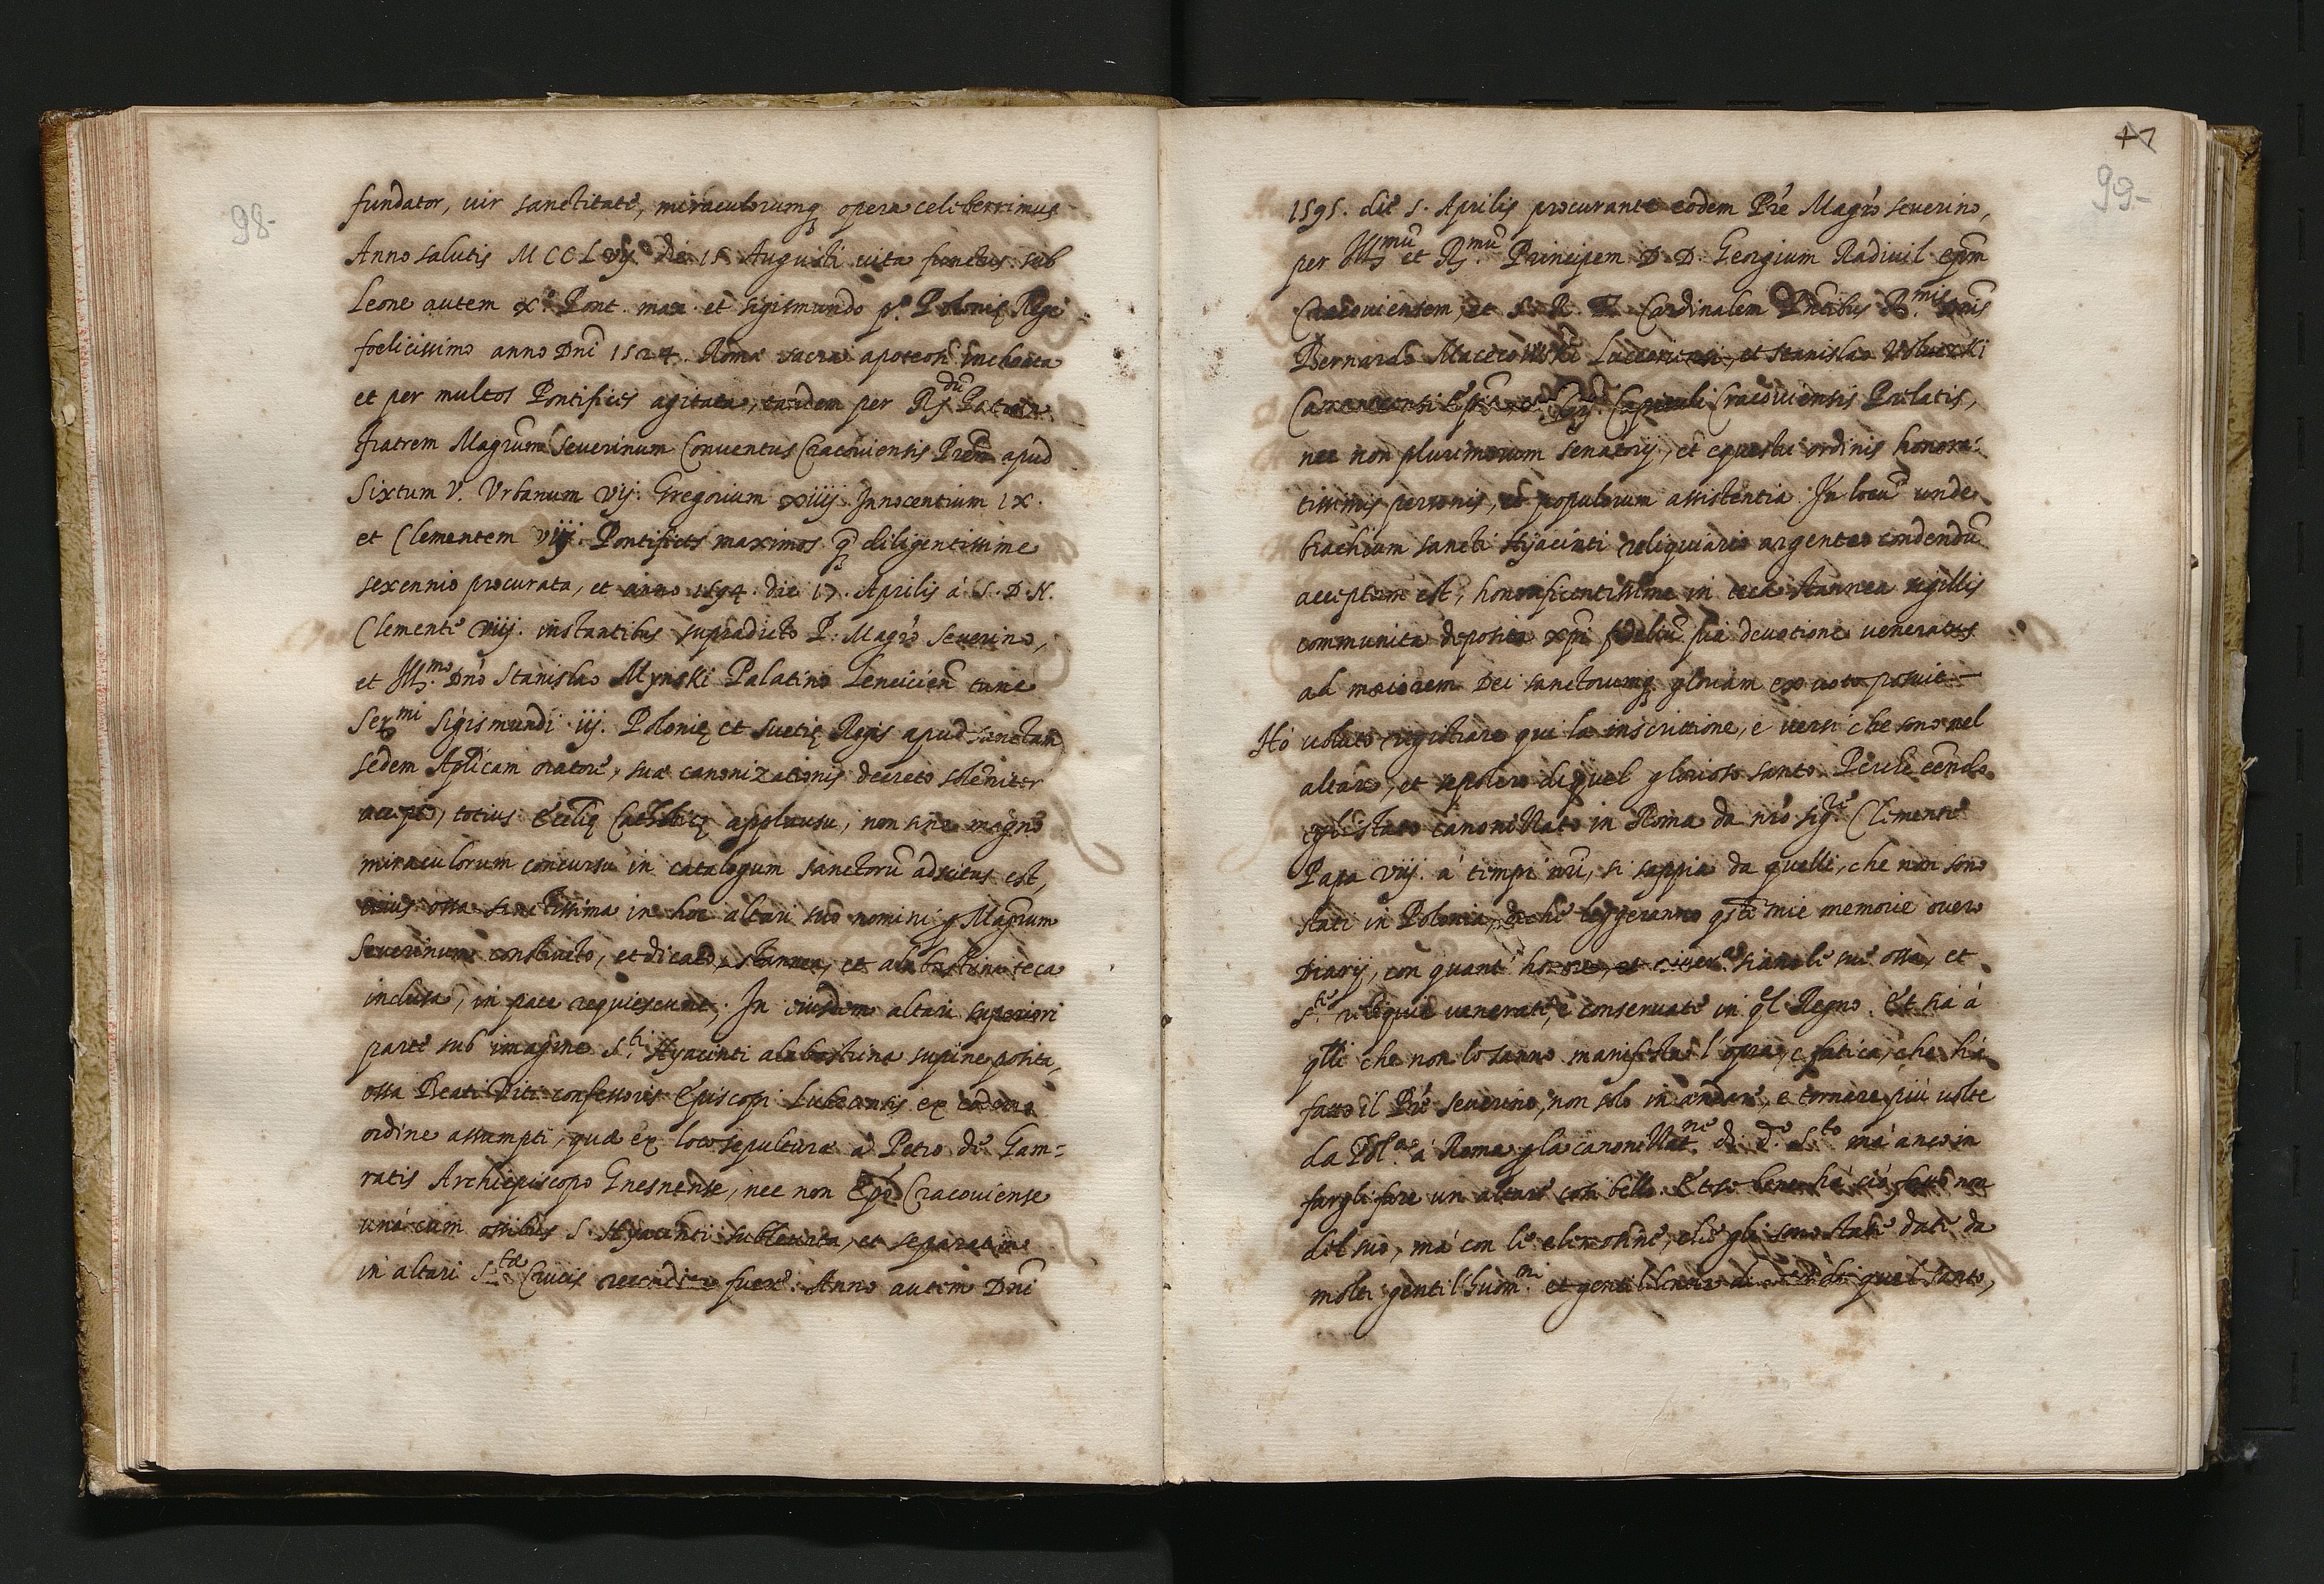 98-
fundator, vir sanctitate, miraculorumq opera celeberrimus
Anno salutis MCCLvij die 15 Augusti vita functus sub
Leone autem x.º Pont. max et sigismundo p.º Polonię Rege
foelicissimo anno Dnĩ 1524. Romæ sacra apoteosi inchoata
et per multos Pontifices agitata, tandem per R.dũ Patrem
fratrem Magrum Severinum Conventus Cracoviensis Prem apud
Sixtum V. Urbanum vij. Gregorium xiiij Innocentium ix.
et Clementem viij. Pontifices maximos q diligentissime
sexennio procurata, et anno 1594. die 17. Aprilis á S. D. N.
Clemente viij. instantibus supradicto P. Magrõ Severino,
et Ill.mo Dnõ Stanislao Mynski Palatino Lenciciens tunc
Ser.mi Sigismundi iij. Polonię et Suetię Regis apud sanctam
sedem Aplicam oratore, suæ canonizationis decreto solẽniter
accepto, totius Ecclię Catholicę applausu, non sine magno
miraculorum concursu in catalogum sanctorũ adscitus est,
cuius ossa sanctissima in hoc altari suo nomini p Magrum
Severinum constructo, et dicato, stannea, et alabastrina teca
inclusa, in pace requiescunt. In eiusdem altari superiori
parte sub imagine S.ti Hyacinti alabastrina supine posita,
ossa Beati Viti confessoris Episcopi Lubecensis ex eodem
ordine assumpti, quæ ex loco sepulturæ á Petro de Gam=
ratis Archiepiscopo Gnesnense, nec non Epõ Cracoviense
uná cum ossibus S. Hyacinti sublevata, et separatim
in altari S.tæ Crucis recondita fuere. Anno autem Dnĩ
47
99-
1595. die 5. Aprilis procurante eodem Pre Magrõ Severino,
per Ill.mũ et R.mũ Principem D. D. Georgium Radivil epm
Cracoviensem, et S. R. E. Cardinalem Pñtibus R.mis Dnis
Bernardo Maceiowski Luceoriensi, et Stanislao
Epis, Capituli Cracoviensis Prelatis,
nec non plurimorum senatorij, et equestris ordinis honora=
tissimis personis, et populorum assistentia. In locũ unde
brachium sancti Hyacinti reliquiario argenteo condendũ
acceptum est, honorificentissime in teca stannea sigillis
communita deposita xpi fideliũ pia devotione veneratus
ad maiorem Dei sanctorumq gloriam ex voto posuit —
Hó voluto registrare qui la inscrittione, e versi che sono nel
altare, et sepolcro di quel glorioso santo. Perche eẽndo
egli stato canoniZato in Roma da nrõ sig.re Clemente
Papa viij. á tempi nri, si sappia da quelli, che non sono
stati in Polonia, e che leggeranno qste mie memorie overo
Diarij, con quante honore, et river.a siano le sue ossa, et
S.te reliquie venerate, e conservate in ql Regno. Et sia á
qlli che non lo sanno manifesto l'opra, e fatica, che há
fatto il Pre Severino, non solo in andare, e tornare piú volte
da Pol.a á Roma p la canoniZat.ne di d.º S.to má anco in
fargli fare un altare cosi bello. Et se bene há ció fatto non
del suo, má con le elemosine, che gli sono state date da
molti gentil'huom.ni et gentildonne di quel santo,